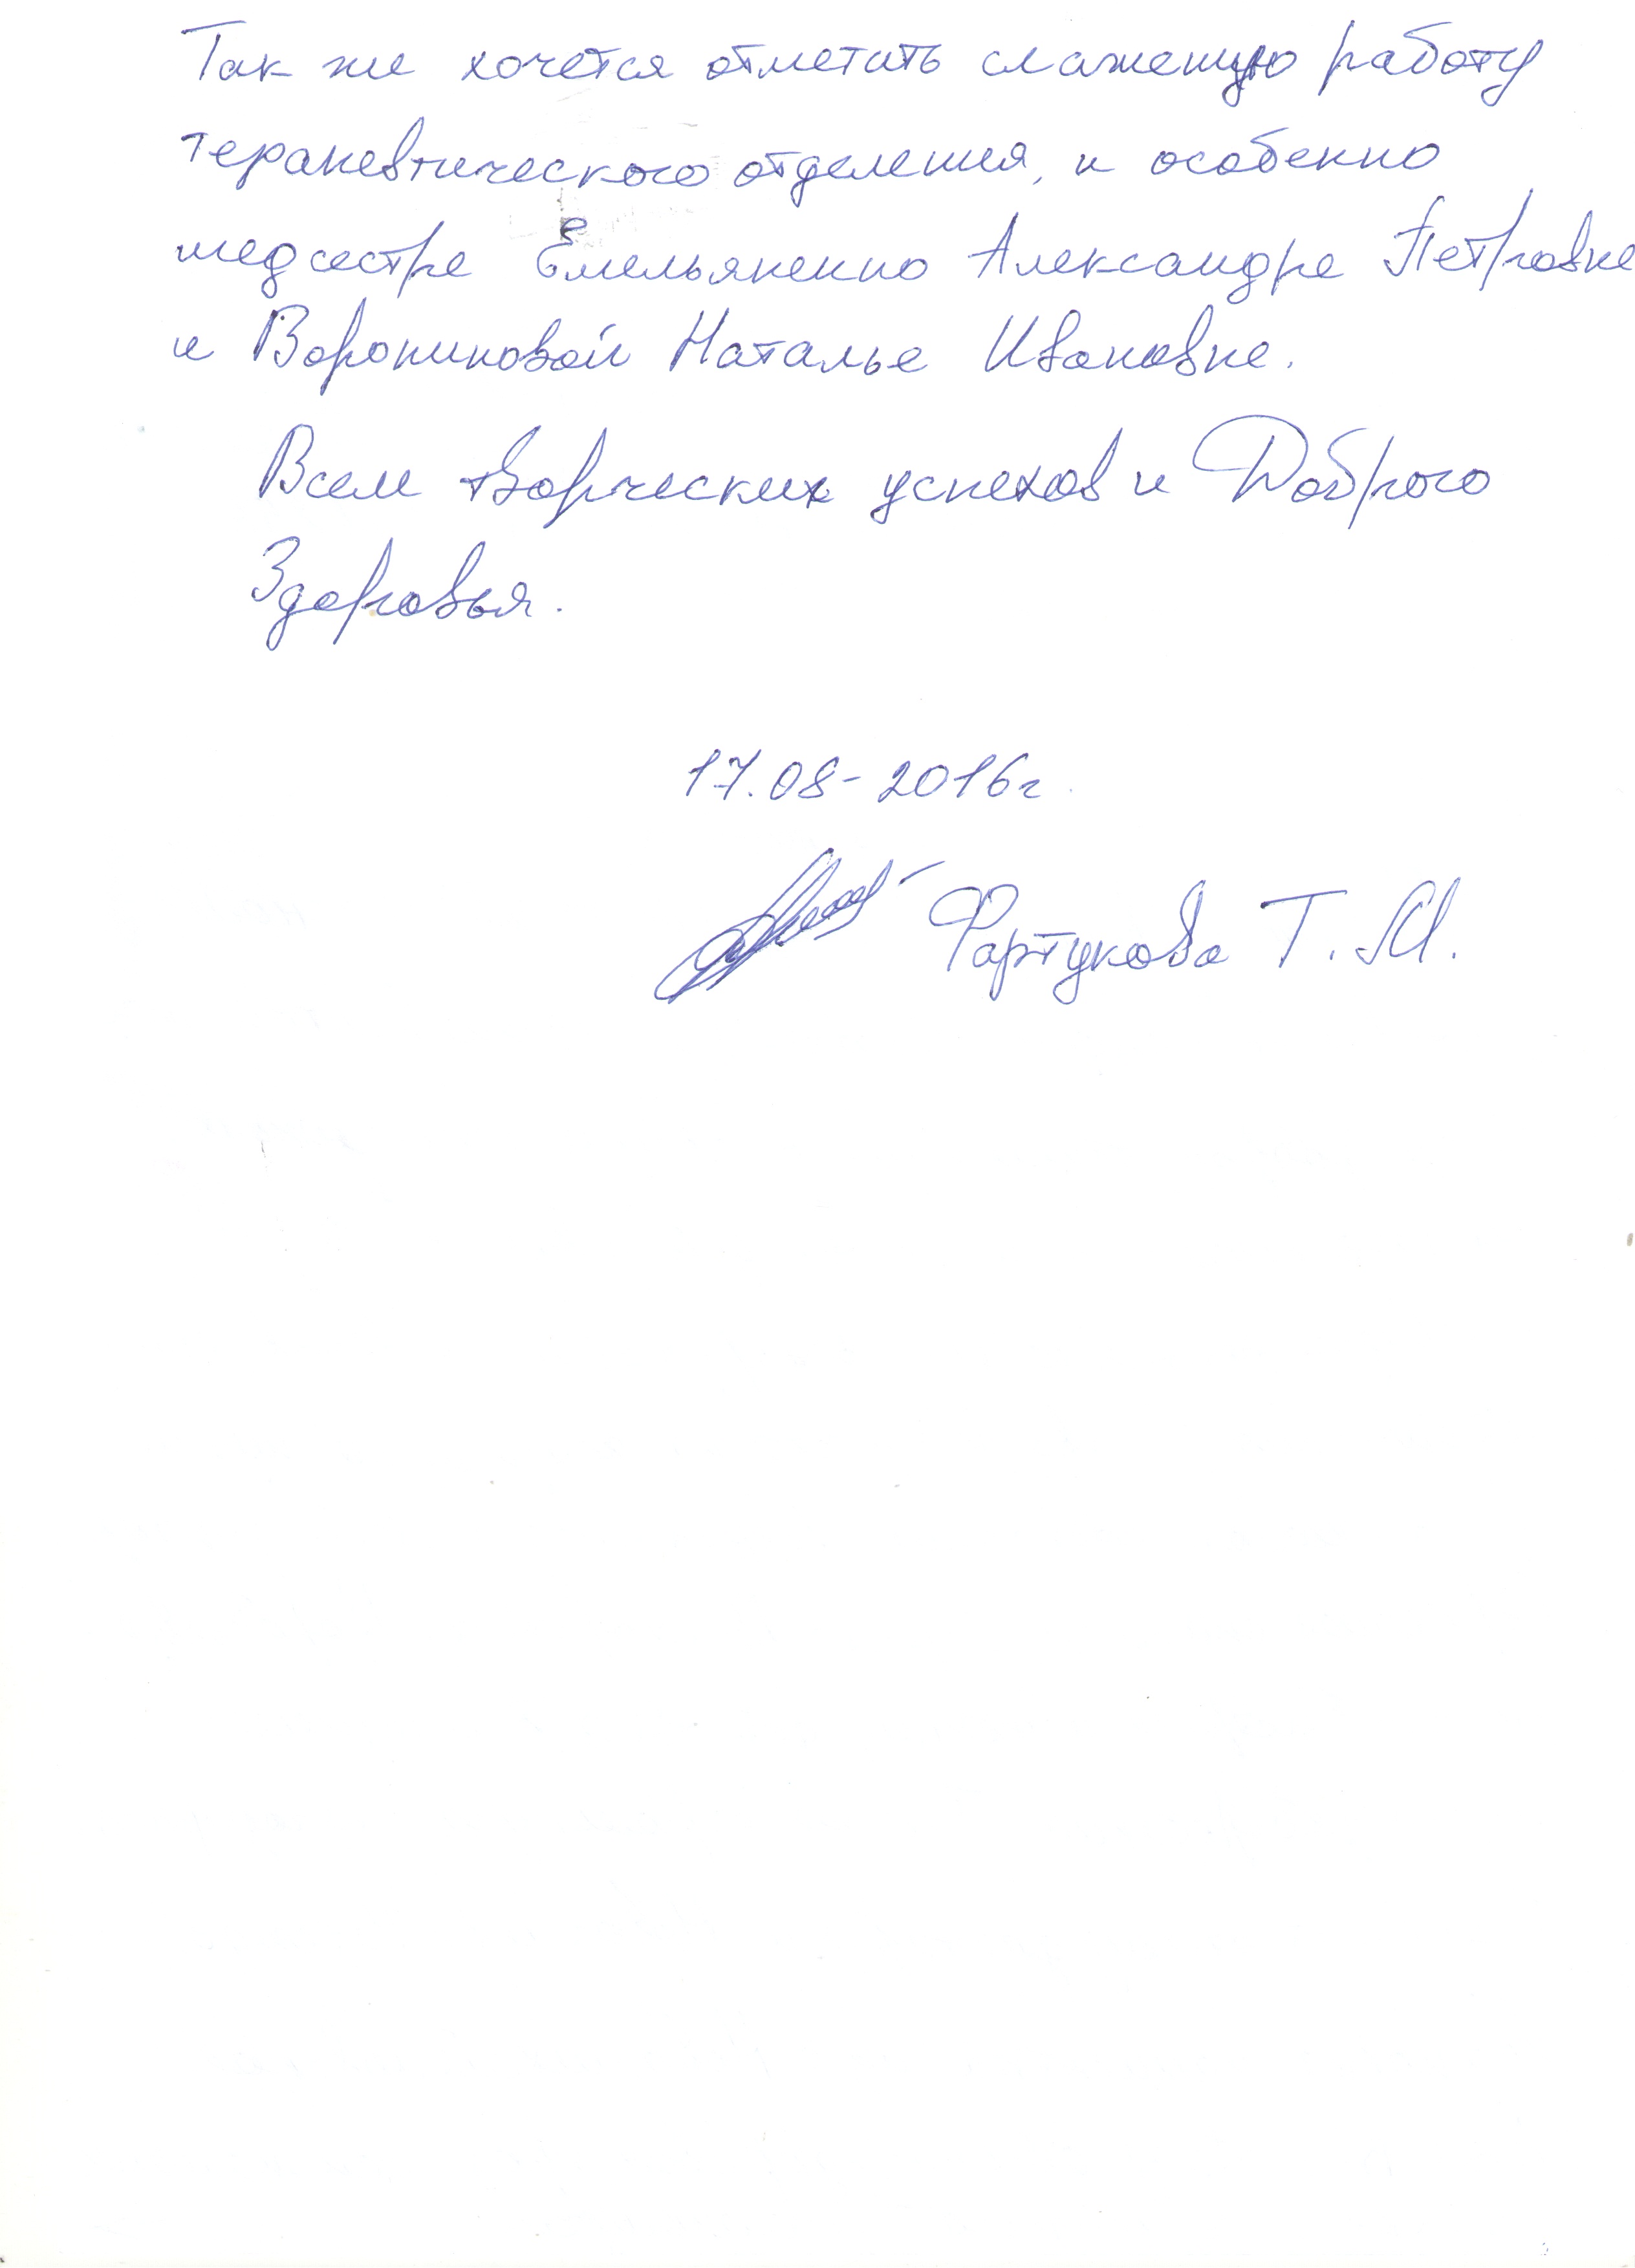 Так же хочется отметить слаженую работу
терапевтического отделения, и особенно
медсестре Емельяненко Александре Петровне
иВорониновой Наталье Ивановне.
Всем творческих успехов и Доброго
Здоровья.
17.08-2016г.
Фартукова Т.М.